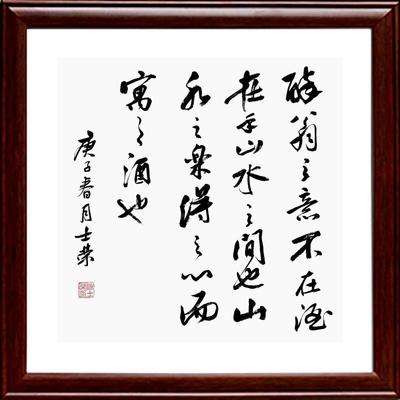 醉翁之意不在酒
在乎山水之间也山
水之乐得之心而
寓之酒也
庚子春月士荣